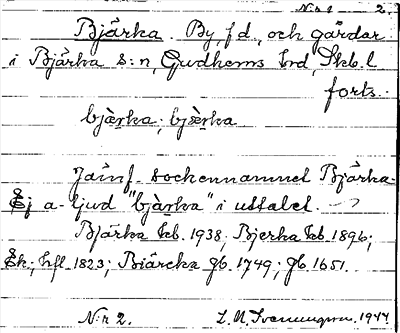 N:r 2 2.
Bjärka. By, f d, och gårdar
i Bjärka s:n, Gudhems hrd, Skb. l
forts.
bjæ̀rka; bjæ̀rka
Jämf. sockennamnet Bjärka.
Ej a-ljud "bjàrka" i uttalet.
Bjärka kb. 1938; Bjerka kb 1896;
Ek; hfl 1823; Biärcka jb. 1749; jb. 1651.
N:r 2. 1944